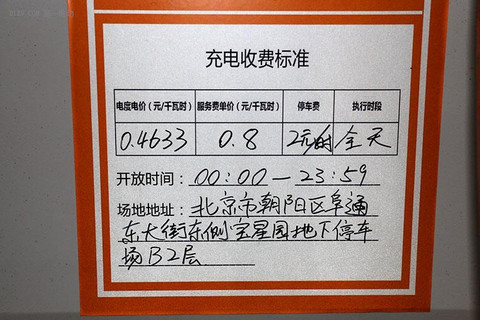 充电收费标准
电度电价（元/千瓦时） 服务费单价（元/千瓦时） 停车费 执行时段
0.4633 0.8 2元/时 全天
开放时间：00:00—23:59
场地地址：北京市朝阳区阜通
东大街东侧宝星园地下停车
场B2层